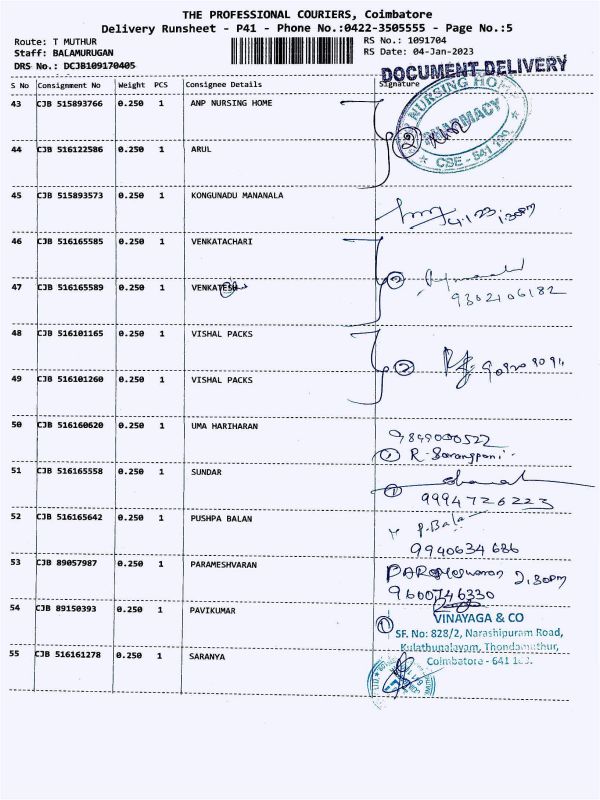 THE PROFESSIONAL COURIERS, Coimbatore
Delivery Runsheet - P41 - Phone No.:0422-3505555 - Page No.:5
Route: T MUTHUR
Staff: BALAMURUGAN
DRS No.: DCJB109170405
RS No.: 1091704
RS Date: 04-Jan-2023
DOCUMENT DELIVERY
S No Consignment No Weight PCS Consignee Details Signature
43 CJB 515893766 0.250 1 ANP NURSING HOME
NURSING HOME
PHARMACY
CBE - 641 100
2
44 CJB 516122586 0.250 1 ARUL
45 CJB 515893573 0.250 1 KONGUNADU MANANALA
46 CJB 516165585 0.250 1 VENKATACHARI
47 CJB 516165589 0.250 1 VENKATESH
2
9302106182
48 CJB 516101165 0.250 1 VISHAL PACKS
2
49 CJB 516101260 0.250 1 VISHAL PACKS
50 CJB 516160620 0.250 1 UMA HARIHARAN
9849000522
1 R-Sarangpani
51 CJB 516165558 0.250 1 SUNDAR
1
9994726223
52 CJB 516165642 0.250 1 PUSHPA BALAN
P. Bala
9940634686
53 CJB 89057987 0.250 1 PARAMESHVARAN
2.30pm
9600746330
54 CJB 89150393 0.250 1 PAVIKUMAR
1
VINAYAGA & CO
SF. No: 828/2, Narashipuram Road,
Kulathupalayam, Thondamuthur,
Coimbatore - 641
55 CJB 516161278 0.250 1 SARANYA